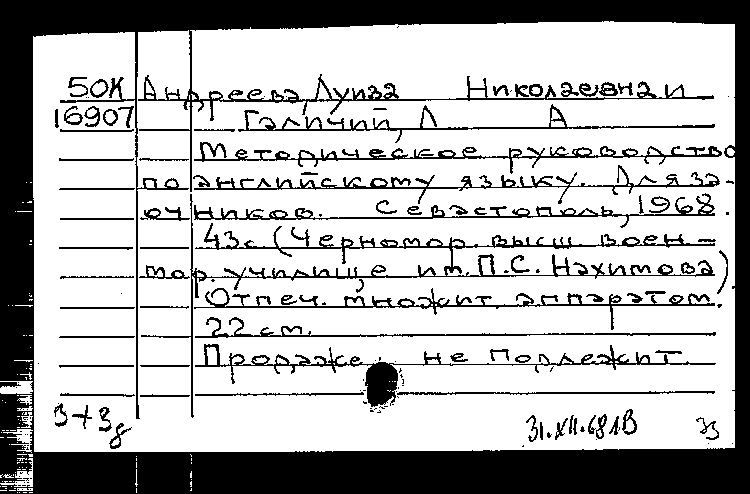 50К Андреева, Луиза Николаевна и
16907 Галичий, Л А
Методическое руководство
по английскому языку. Для за-
очников. Севастополь, 1968.
43с. (Черномор. высш. воен-
мор. училище им. П.С. Нахимова)
Отпеч. множит. аппаратом.
22 см.
Продаже не подлежит.
3+3д
31.XII.68 1В 33